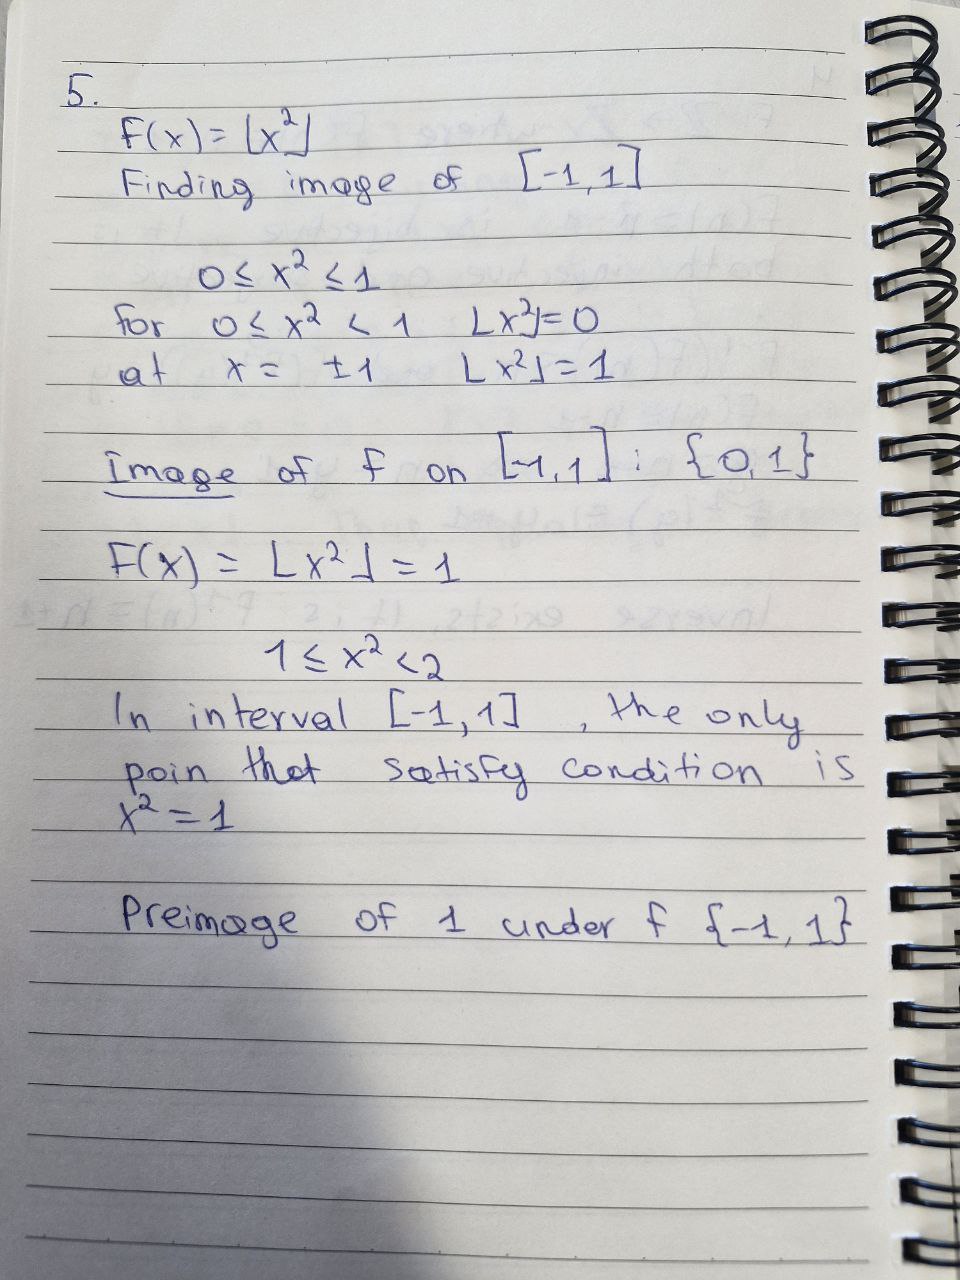 5.
F(x) = ⌊x²⌋
Finding image of [-1, 1]
0 ≤ x² ≤ 1
for 0 ≤ x² < 1 ⌊x²⌋ = 0
at x = ±1 ⌊x²⌋ = 1
Image of f on [-1, 1] : {0, 1}
F(x) = ⌊x²⌋ = 1
1 ≤ x² < 2
In interval [-1, 1] , the only
poin that satisfy condition is
x² = 1
Preimage of 1 under f {-1, 1}